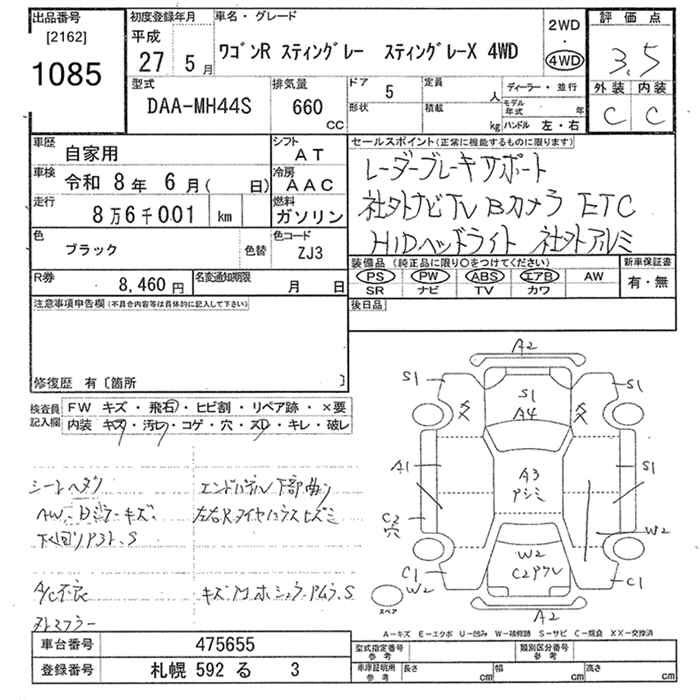 出品番号
[2162]
1085
初度登録年月
平成
27 5月
車名・グレード
ワゴンR スティングレー スティングレーX 4WD
2WD
・
4WD
評価点
3.5
外装 内装
C C
型式
DAA-MH44S
排気量
660
CC
ドア
5
定員
人
形状
積載
kg
ディーラー・並行
モデル年式
年
ハンドル 左・右
車歴
自家用
シフト
AT
車検
令和 8年 6月( 日)
冷房
AAC
走行
8万6千001 km
燃料
ガソリン
色
ブラック
色替
色コード
ZJ3
R券
8,460円
名変通知期限
月 日
セールスポイント(正常に機能するものに限ります)
レーダーブレーキサポート
社外ナビTV Bカメラ ETC
HIDヘッドライト 社外アルミ
装備品(純正品に限り○をつけてください)
新車保証書
PS PW ABS エアB AW
有・無
SR ナビ TV カワ
後日品
注意事項申告欄(不具合内容等は具体的に記入して下さい)
修復歴 有〔箇所 〕
検査員記入欄
FW キズ・飛石・ヒビ割・リペア跡・×要
内装 キズ・汚レ・コゲ・穴・スレ・キレ・破レ
シートヘタリ
エンドパネル下部曲り
左右Rタイヤハウスヒズミ
A/C不良
外レマフラー
A2
S1
S1
S1
A4
A1
A3
S1
C2
穴
W2
W2
C1
W2
C1
A2
スペア
A-キズ E-エクボ U-凹み W-補修跡 S-サビ C-腐食 XX-交換済
車台番号
475655
登録番号
札幌 592 る 3
型式指定番号
参考
類別区分番号
参考
車庫証明用
参考
長さ
cm
幅
cm
高さ
cm